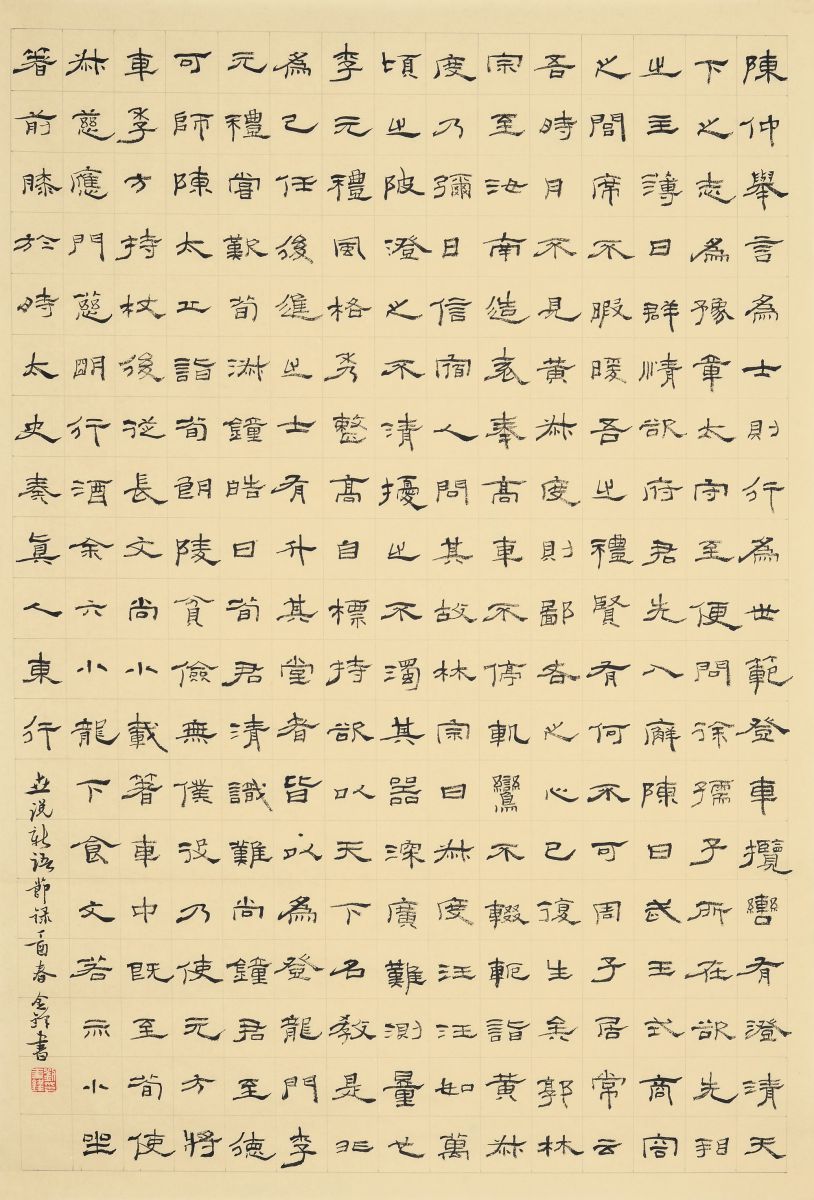 陳仲舉言為士則行為世範登車攬轡有澄清天
下之志為豫章太守至便問徐孺子所在欲先看
之主薄曰群情欲府君先入廨陳曰武王式商容
之閭席不暇暖吾之禮賢有何不可周子居常云
吾時月不見黃叔度則鄙吝之心已復生矣郭林
宗至汝南造袁奉高車不停軌鸞不輟軛詣黃叔
度乃彌日信宿人問其故林宗曰叔度汪汪如萬
頃之陂澄之不清擾之不濁其器深廣難測量也
李元禮風格秀整高自標持欲以天下名教是非
為己任後進之士有升其堂者皆以為登龍門李
元禮嘗歎荀淑鐘皓曰荀君清識難尚鐘君至德
可師陳太丘詣荀朗陵貧儉無僕役乃使元方將
車季方持杖後從長文尚小載著車中既至荀使
叔慈應門慈明行酒余六小龍下食文若亦小坐
著前膝於時太史奏真人東行
世说新语節録丁酉春書